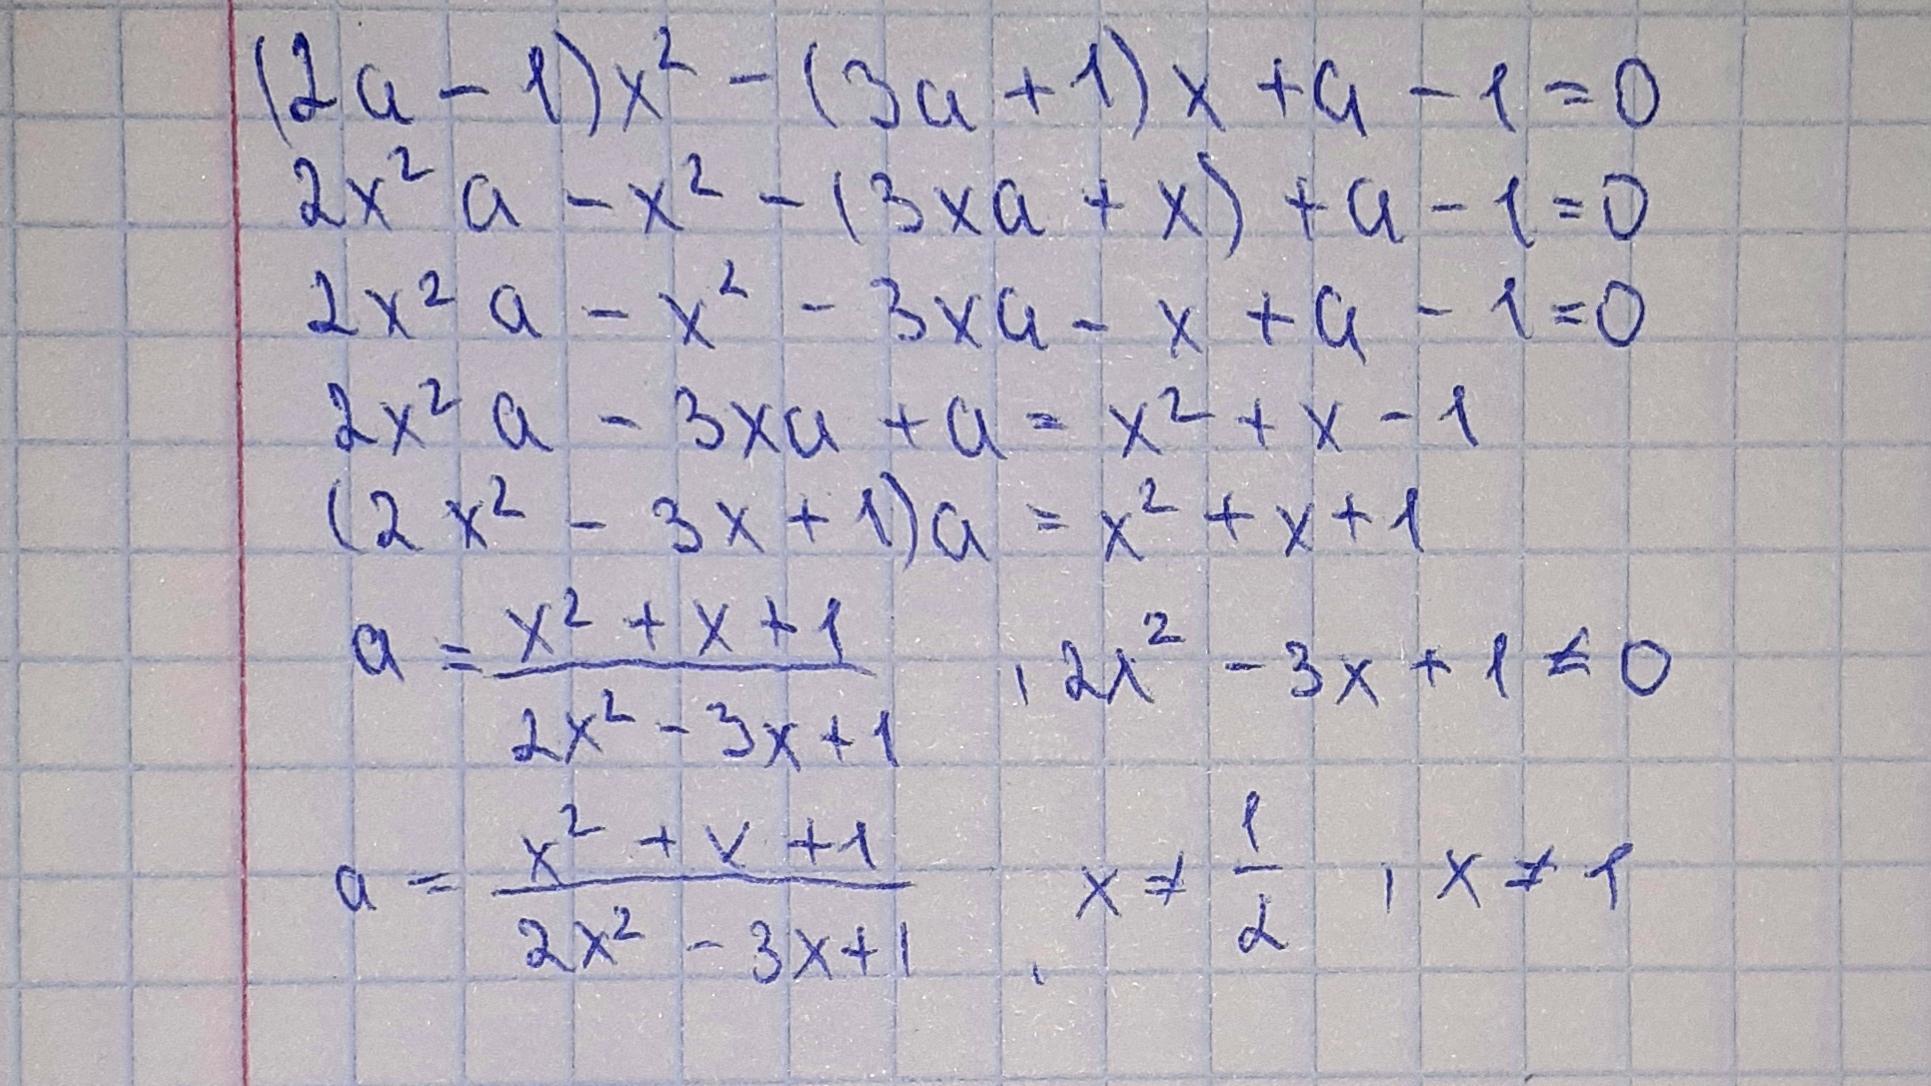 (2a - 1)x² - (3a + 1)x + a - 1 = 0
2x² a - x² - (3xa + x) + a - 1 = 0
2x² a - x² - 3xa - x + a - 1 = 0
2x² a - 3xa + a = x² + x - 1
(2x² - 3x + 1)a = x² + x + 1
a = (x² + x + 1)/(2x² - 3x + 1) , 2x² - 3x + 1 ≠ 0
a = (x² + x + 1)/(2x² - 3x + 1) , x ≠ 1/2 , x ≠ 1